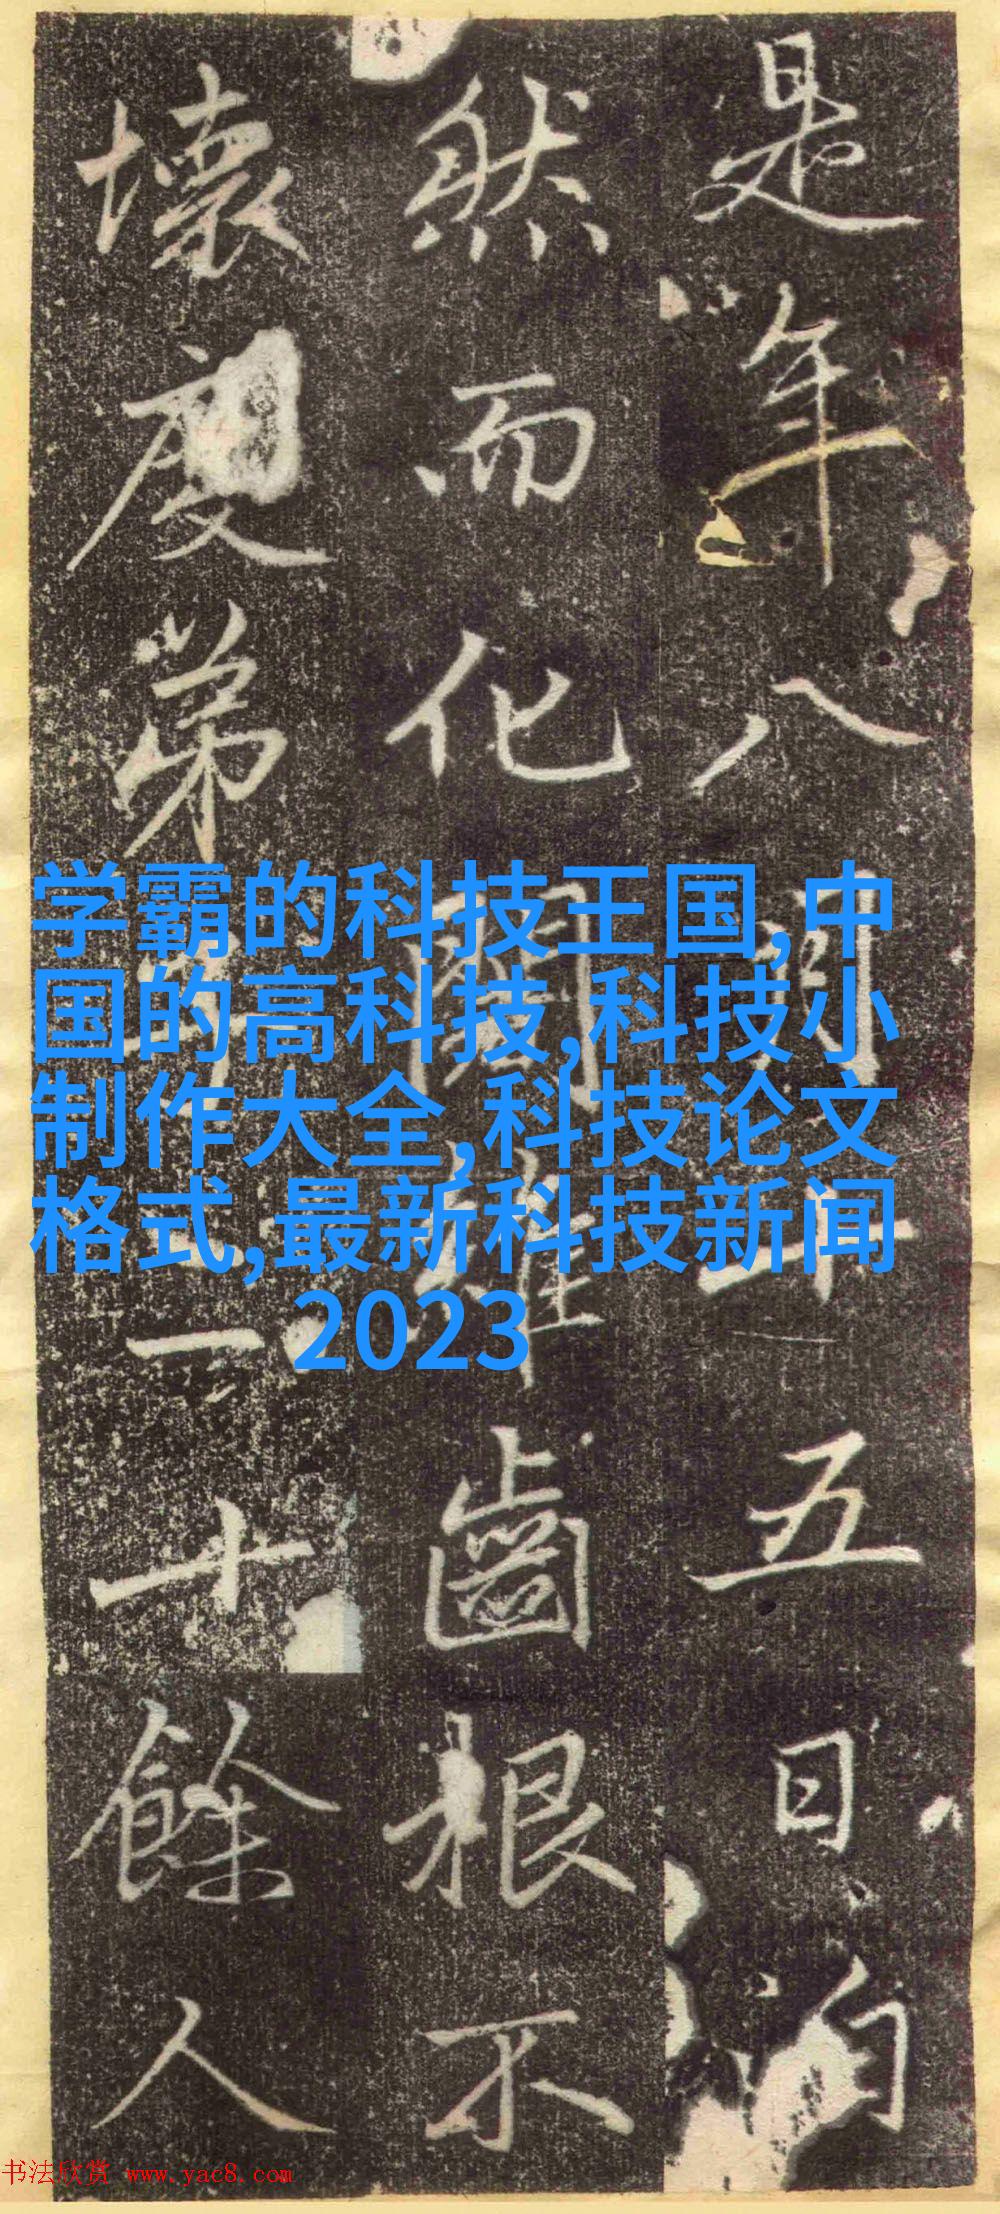 是年八月十五日自
然而化闍維齒根不
壞度弟十餘人
学霸的科技王国,中
国的高科技,科技小
制作大全,科技论文
格式,最新科技新闻
2023
书法欣赏 www.yac8.com